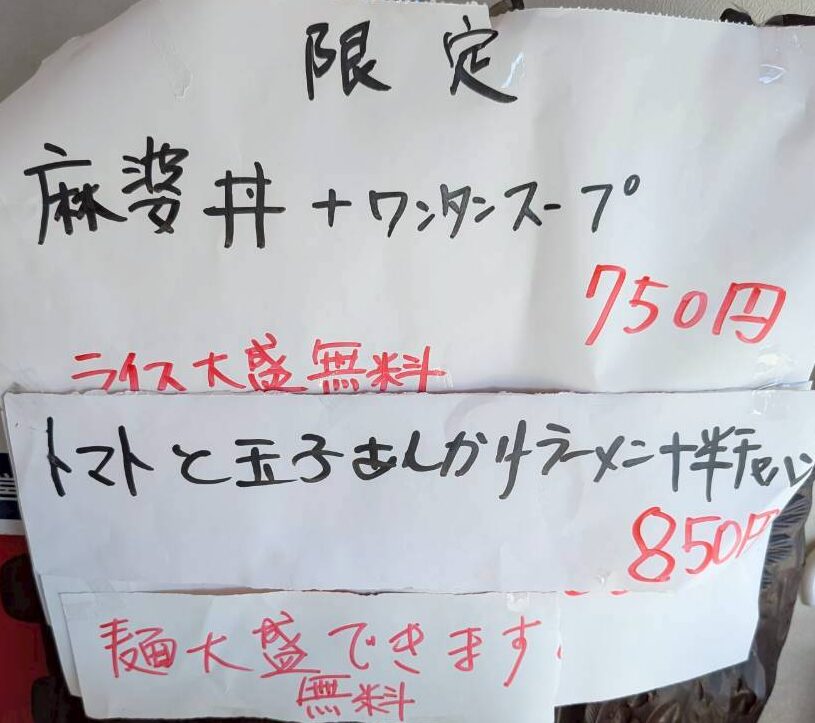 限定
麻婆丼+ワンタンスープ
750円
ライス大盛無料
トマトと玉子あんかけラーメン+半チャン
850円
麺大盛できます
無料